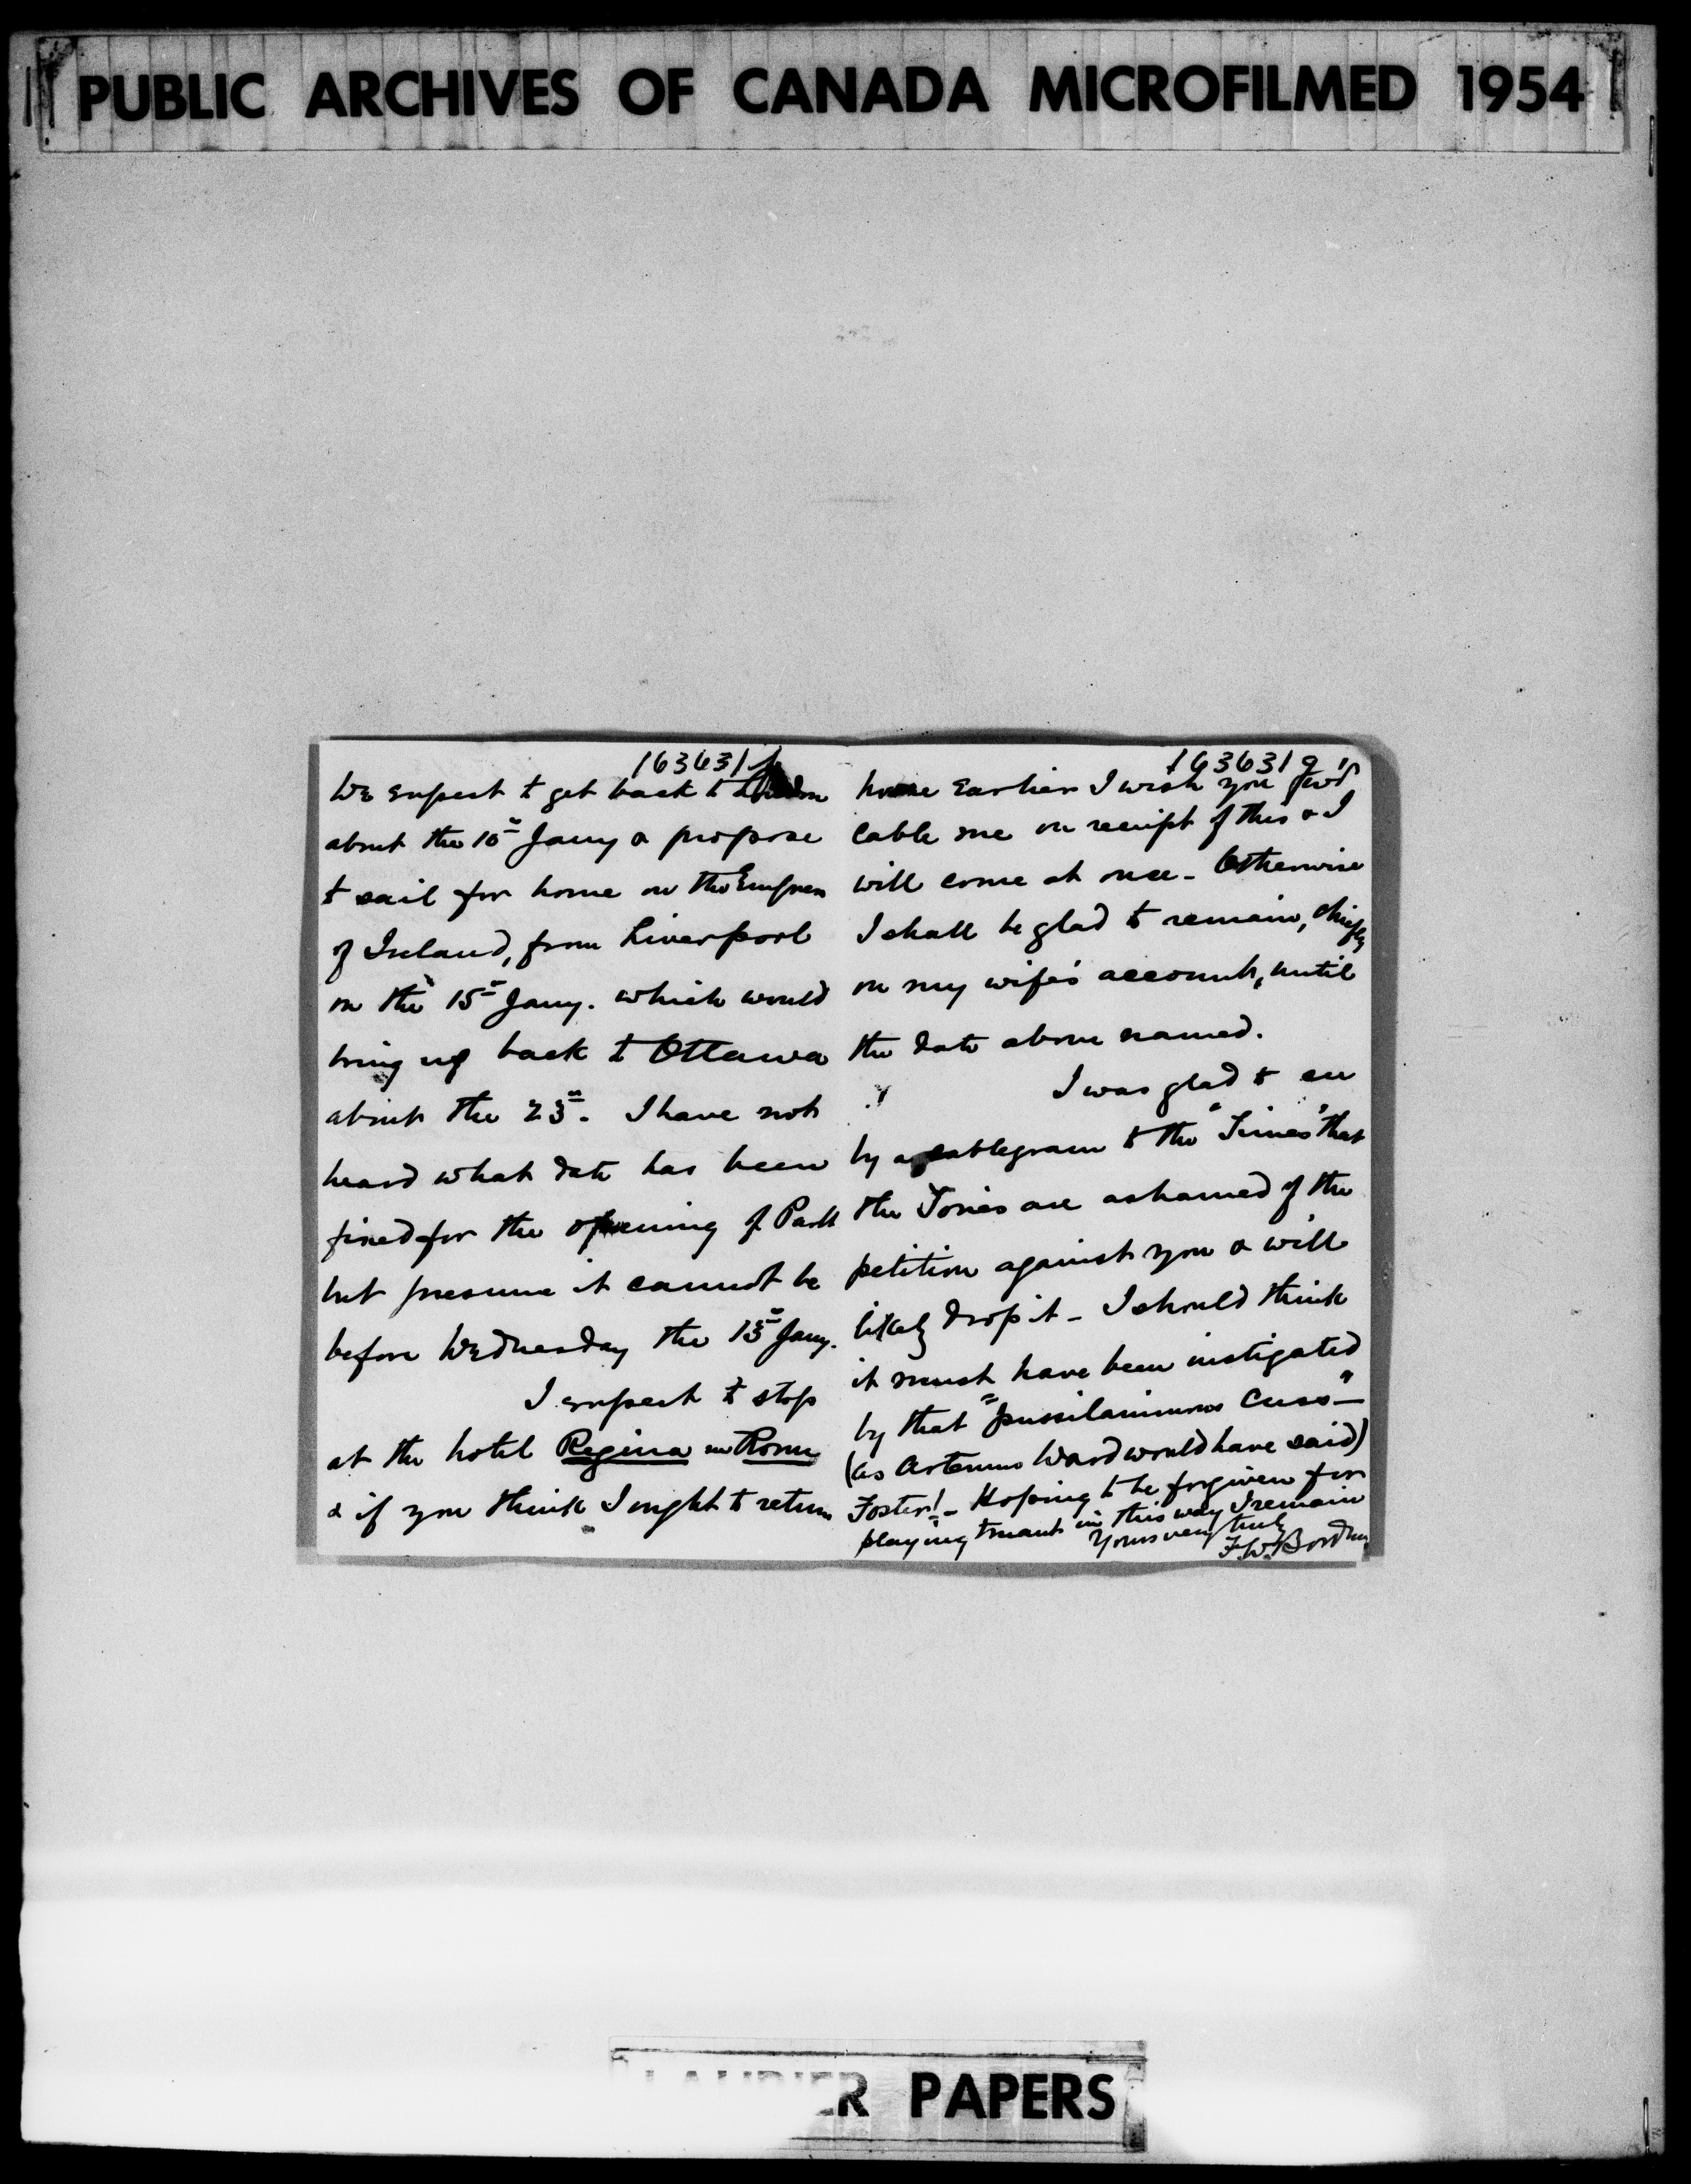 PUBLIC ARCHIVES OF CANADA MICROFILMED 1954
163631f
We expect to get back to London
about the 10th Jany & propose
to sail for home on the Empress
of Ireland, from Liverpool
on the 15th Jany. which would
bring us back to Ottawa
about the 23rd. I have not
heard what date has been
fixed for the opening of Parlt
but presume it cannot be
before Wednesday the 13th Jany.
I expect to stop
at the hotel Regina in Rome
& if you think I ought to return
163631g
home earlier I wish you
cable me on receipt of this & I
will come at once - Otherwise
I shall be glad to remain, chiefly
on my wife's account, until
the date above named.
I was glad to see
by a cablegram to the "Times" that
the Tories are ashamed of the
petition against you & will
likely drop it - I should think
it must have been instigated
by that "pussilanimous cuss" -
(as Artemus Ward would have said)
Foster! - Hoping to be forgiven for
playing truant in this way I remain
Yours very truly
F.W. Borden
PAPERS